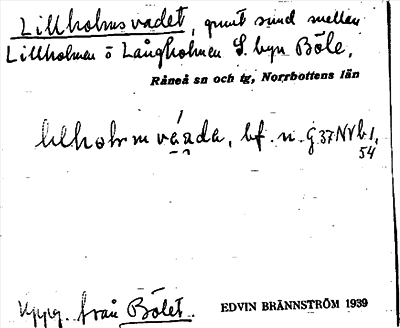 Lillholmsvadet, grunt sund mellan
Lillholmen o Långholmen S. byn Böle,
Råneå sn och tg, Norrbottens län
lilholmváada, bf. n. G 37 NV b 1,
54
Uppg. från Bölet.
EDVIN BRÄNNSTRÖM 1939